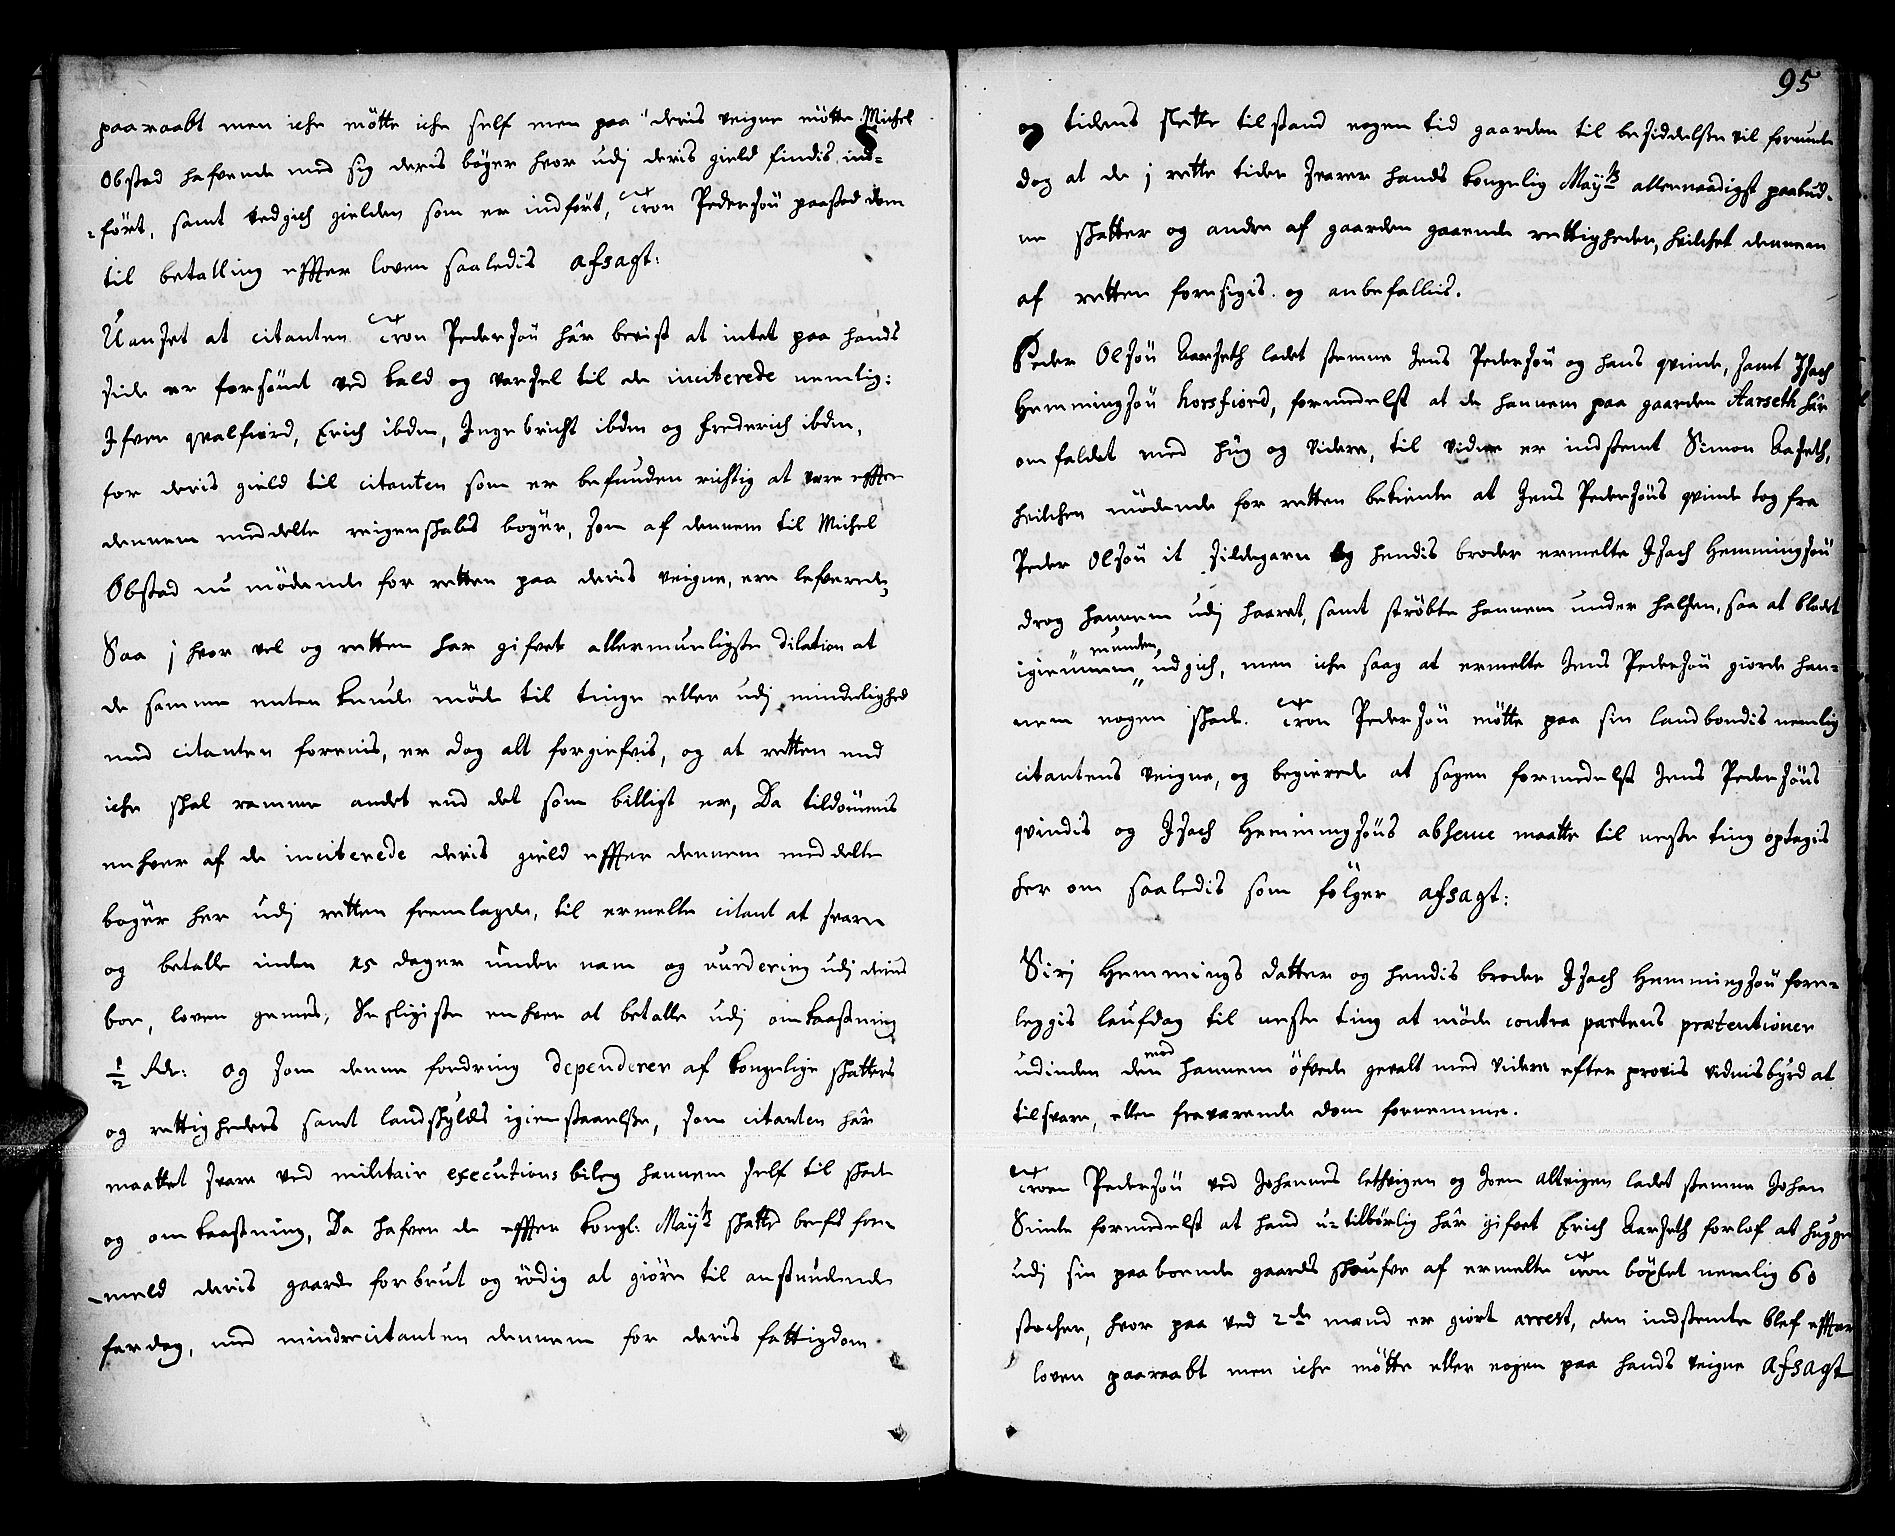 paaraabt men iche mötte iche self men paa deris veigne mötte Michel
Obstad hafvende med sig deris böger hvor udj deris gield findis ind-
fört, samt vedgich gielden som er indfört, Tron Pedersön paastod dom
til betalling effter loven saaledis afsagt:
Uanset at citanten Tron Pedersön hâr bevist at intet paa hands
side er forsömt ved kald og varsel til de inciterede nemlig:
Ifver qvalfiord, Erich ibdm, Ingebricht ibdm og Frederich ibdm,
for deris gield til citanten som er befunden richtig at vere effter
dennem meddelte reigenskabs böger, som af dennem til Michel
Obstad nu mödende for retten paa deris veigne, ere lefverede,
Saa j hvor vel og retten har gifvet allermueligste dilation at
de samme enten kunde möde til tinge eller udj mindelighed
med citanten forenis, er dog alt forgiefvis, og at retten end
iche skal ramme andet end det som billigt er, Da tildömmis
enhver af de inciterede deris gield effter dennem meddelte
böger her udj retten fremlagde, til ermelte citant at svare
og betalle inden 15 dager under nam og vurdering udj deris
boe, loven gemes, Desligiste enhver at betalle udj omkaastning
1/2 Rdr: og som denne fordring dependerer af kongelige skatters
og rettigheders samt landskylds igienstaaelse, som citanten hâr
maattet svare ved militair executions bileg hannem self til skade
og omkaastning, Da hafver de effter kongl: Mayts skatte brefs for-
meld deris gaarde forbrut og rödig at giöre til anstundende
fardag, med mindre citanten dennem for deris fattigdom
95
og tidens slette tilstand nogen tid gaarden til besiddelse vil forunde
dog at de j rette tider svarer hands kongelig Mayts allernaadigst paabud-
ne skatter og andre af gaarden gaaende rettigheder, hvilchet dennem
af retten foresigis og anbefallis.
Peder Olsön Aarseth ladet stemne Jens Pedersön og hans qvinde, samt Isach
Hemmingsön korsfiord, formedelst at de hannem paa gaarden Aarseth hâr
omfaldet med hug og videre, til vidne er indstemt Simon Aaseth,
hvilchen mödende for retten bekiente at Jens Pedersöns qvinde tog fra
Peder Olsön it sildegarn og hendis broder ermelte Isach Hemmingsön
drog hannem udj haaret, samt ströbte hannem under halsen, saa at blodet
igiennem munden udgich, men iche saag at ermelte Jens Pedersön giorde han-
nem nogen skade. Tron Pedersön mötte paa sin landbondis nemlig
citantens veigne, og begierede at sagen formedelst Jens Pedersöns
qvindis og Isach Hemmingsöns absence maatte til neste ting optagis
her om saaledis som fölger afsagt:
Sirj Hemmings datter og hendis broder Isach Hemmingsön fore-
leggis laufdag til neste ting at möde contra partens prætentioner
udinden den mod hannem öfvede gevalt med videre efter provis vidnisbyrd at
tilsvare, eller fraværende dom fornemme.
Tron Pedersön ved Johannes lethvigen og Joen altvigen ladet stemne Johan
Simle formedelst at hand u-tilbörlig hâr gifvet Erich Aarseth forlof at hugge
udj sin paaboende gaards skoufve af ermelte Tron böxlet nemlig 60
stocher, hvor paa ved 2de mænd er giort arrest, den indstemte blef effter
loven paaraabt men iche mötte eller nogen paa hands veigne Afsagt